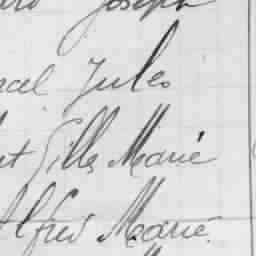 Joseph
Jules
Gilles Marie
Alfred Marie